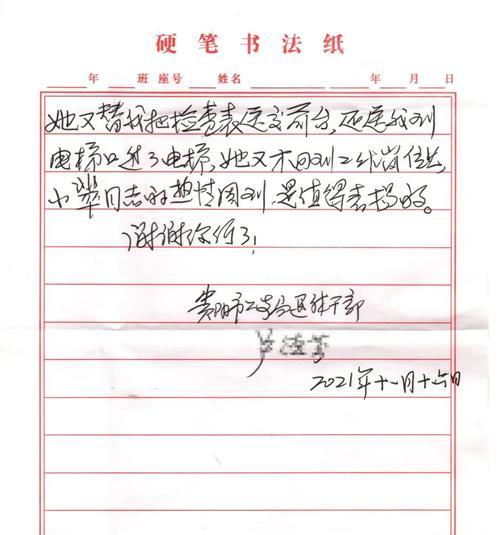 硬笔书法纸
年 班 座号 姓名 年 月 日
她又替我把检查表送交前台,还送我到
电梯口进了电梯,她又才回到工作岗位上,
小翠同志的热情周到,是值得表扬的。
谢谢你们了!
贵阳市二干休所退休干部
2021年十一月十六日